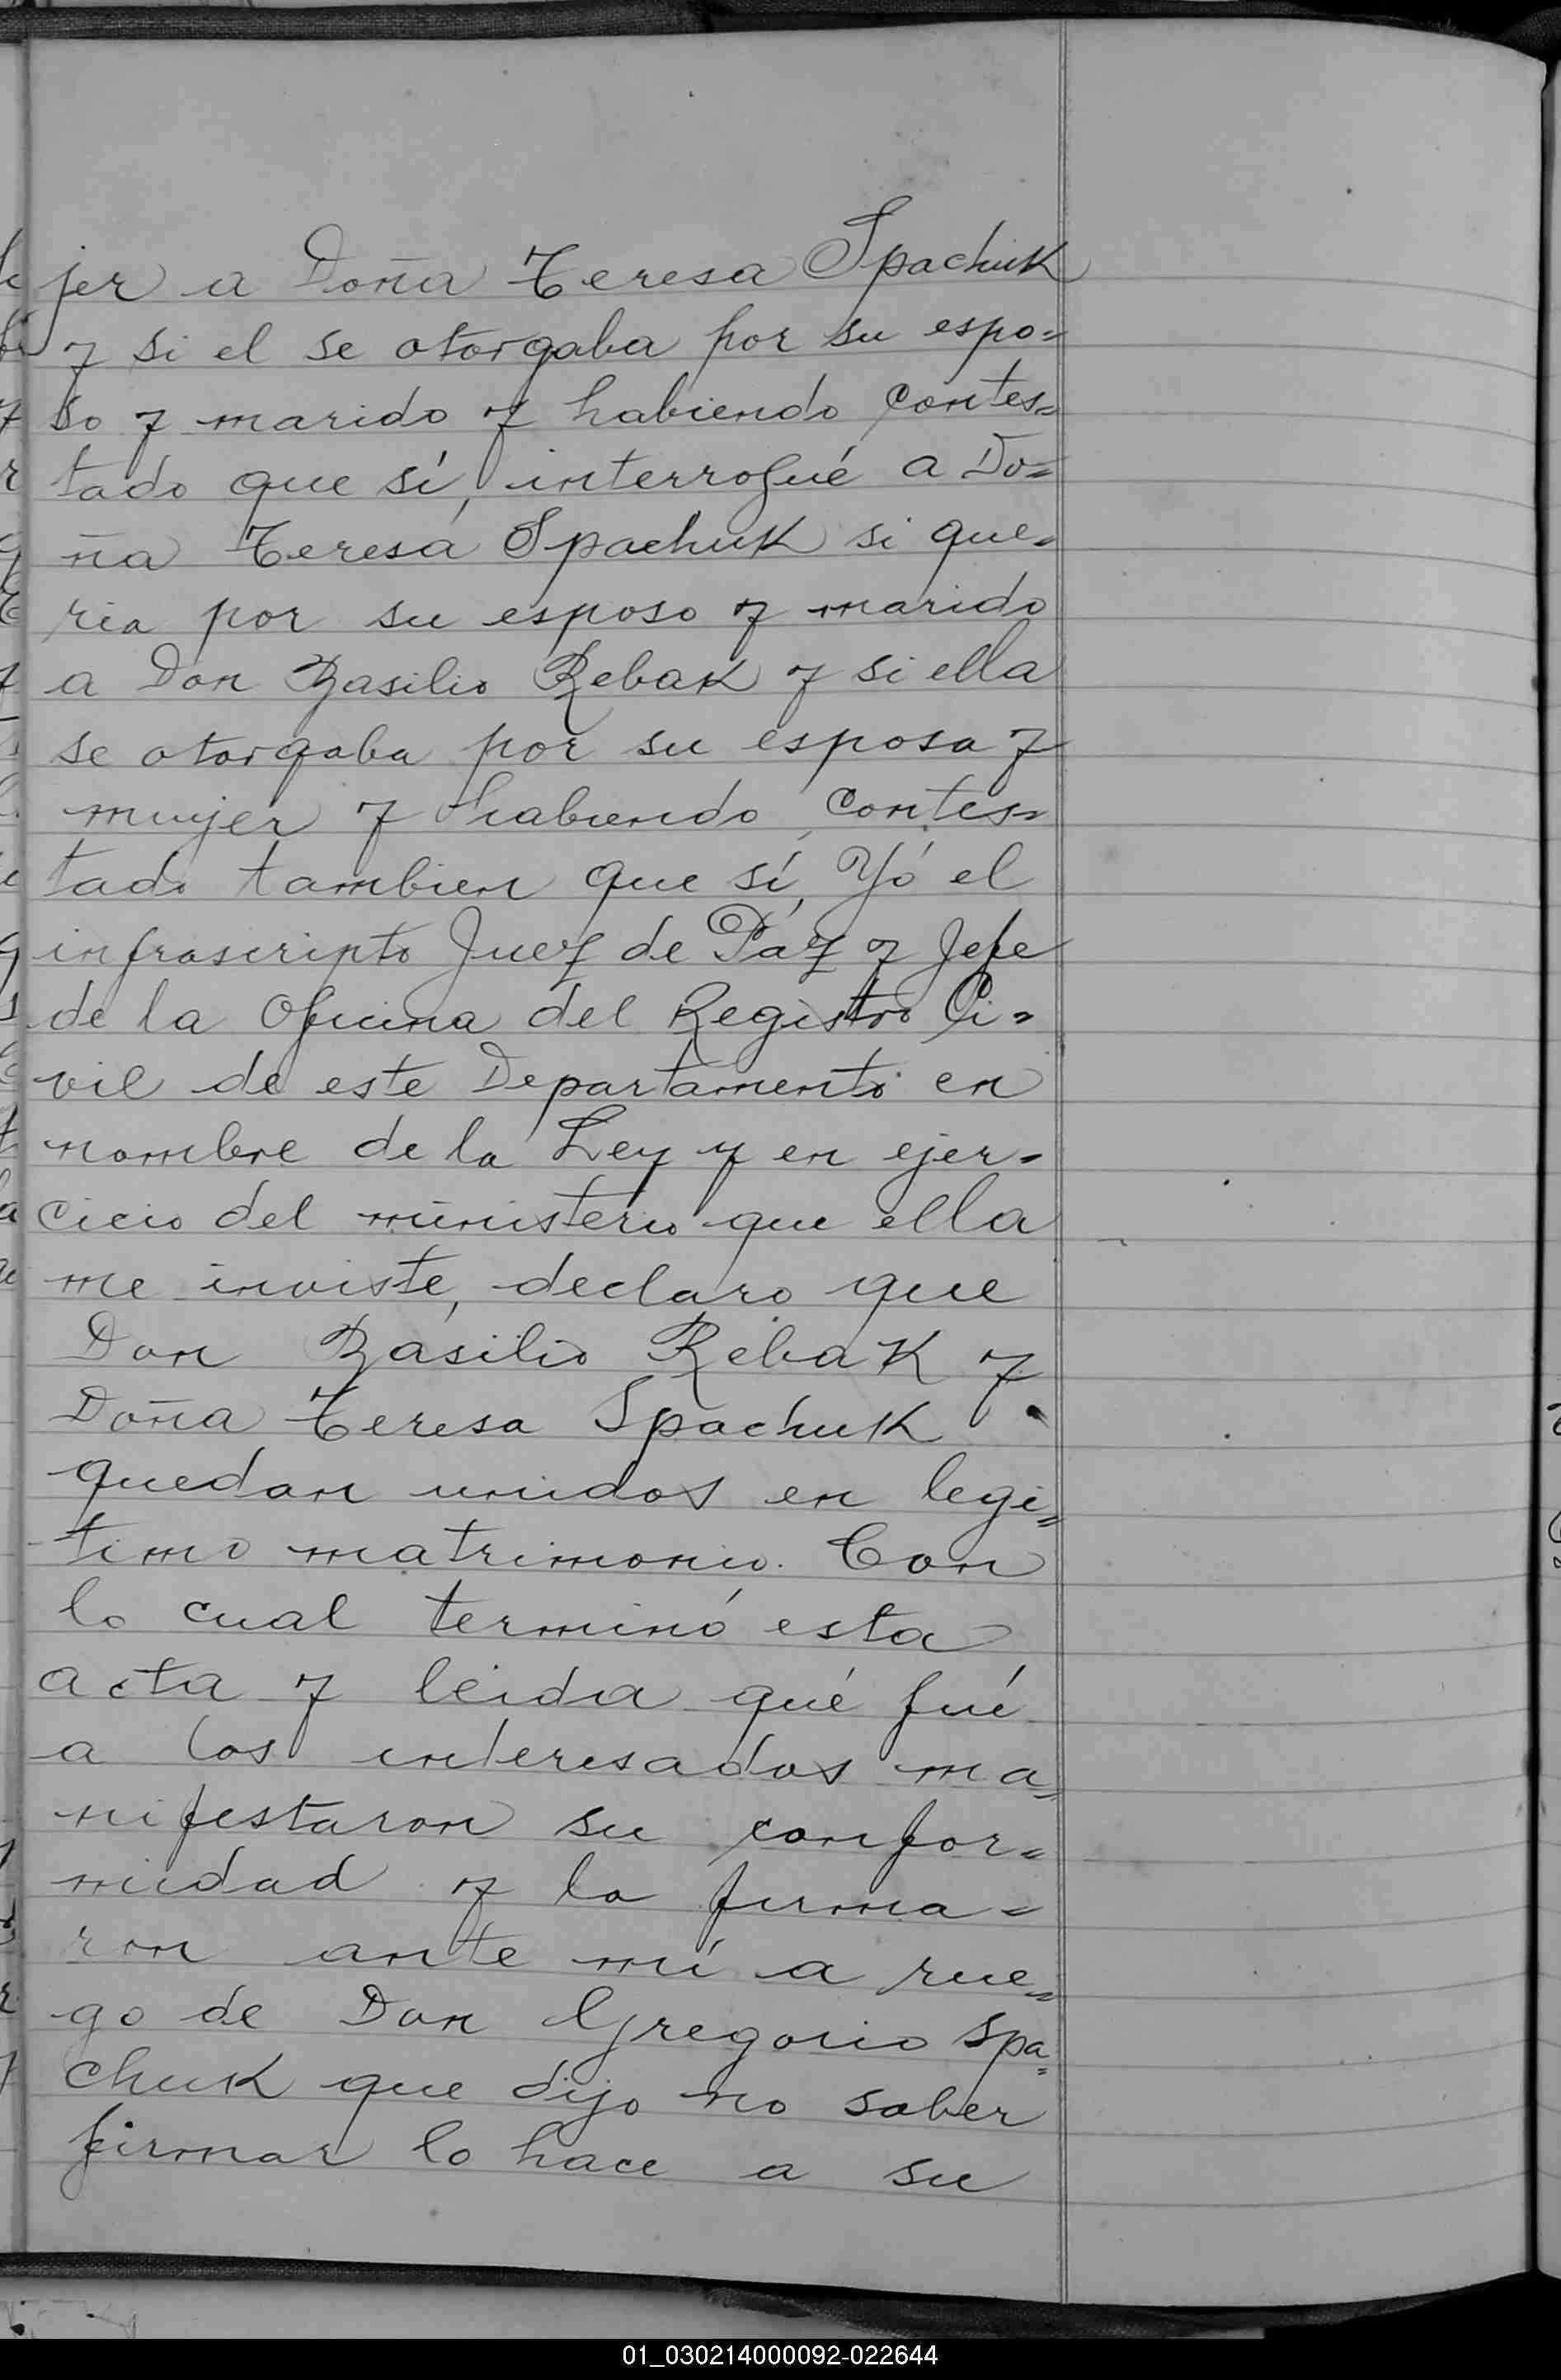 jer a Doña Teresa Spachuk
y si el se otorgaba por su espo=
so y marido y habiendo contes=
tado que sí, interrogué a Do=
ña Teresa Spachuk si que=
ria por su esposo y marido
a Don Basilio Rebak y si ella
se otorgaba por su esposa y
mujer y habiendo contes=
tado tambien que sí, Yó el
infrascripto Juez de Páz y Jefe
de la Oficina del Registro Ci=
vil de este Departamento en
nombre de la Ley y en ejer=
cicio del ministerio que ella
me inviste, declaro que
Don Basilio Rebak y
Doña Teresa Spachuk
quedan unidos en legi=
timo matrimonio. Con
lo cual terminó esta
acta y leida qué fué
a los interesados ma=
nifestaron su confor=
midad y la firma=
ron ante mí a rue=
go de Don Gregorio Spa=
chuk que dijo no saber
firmar lo hace a su
01_030214000092-022644